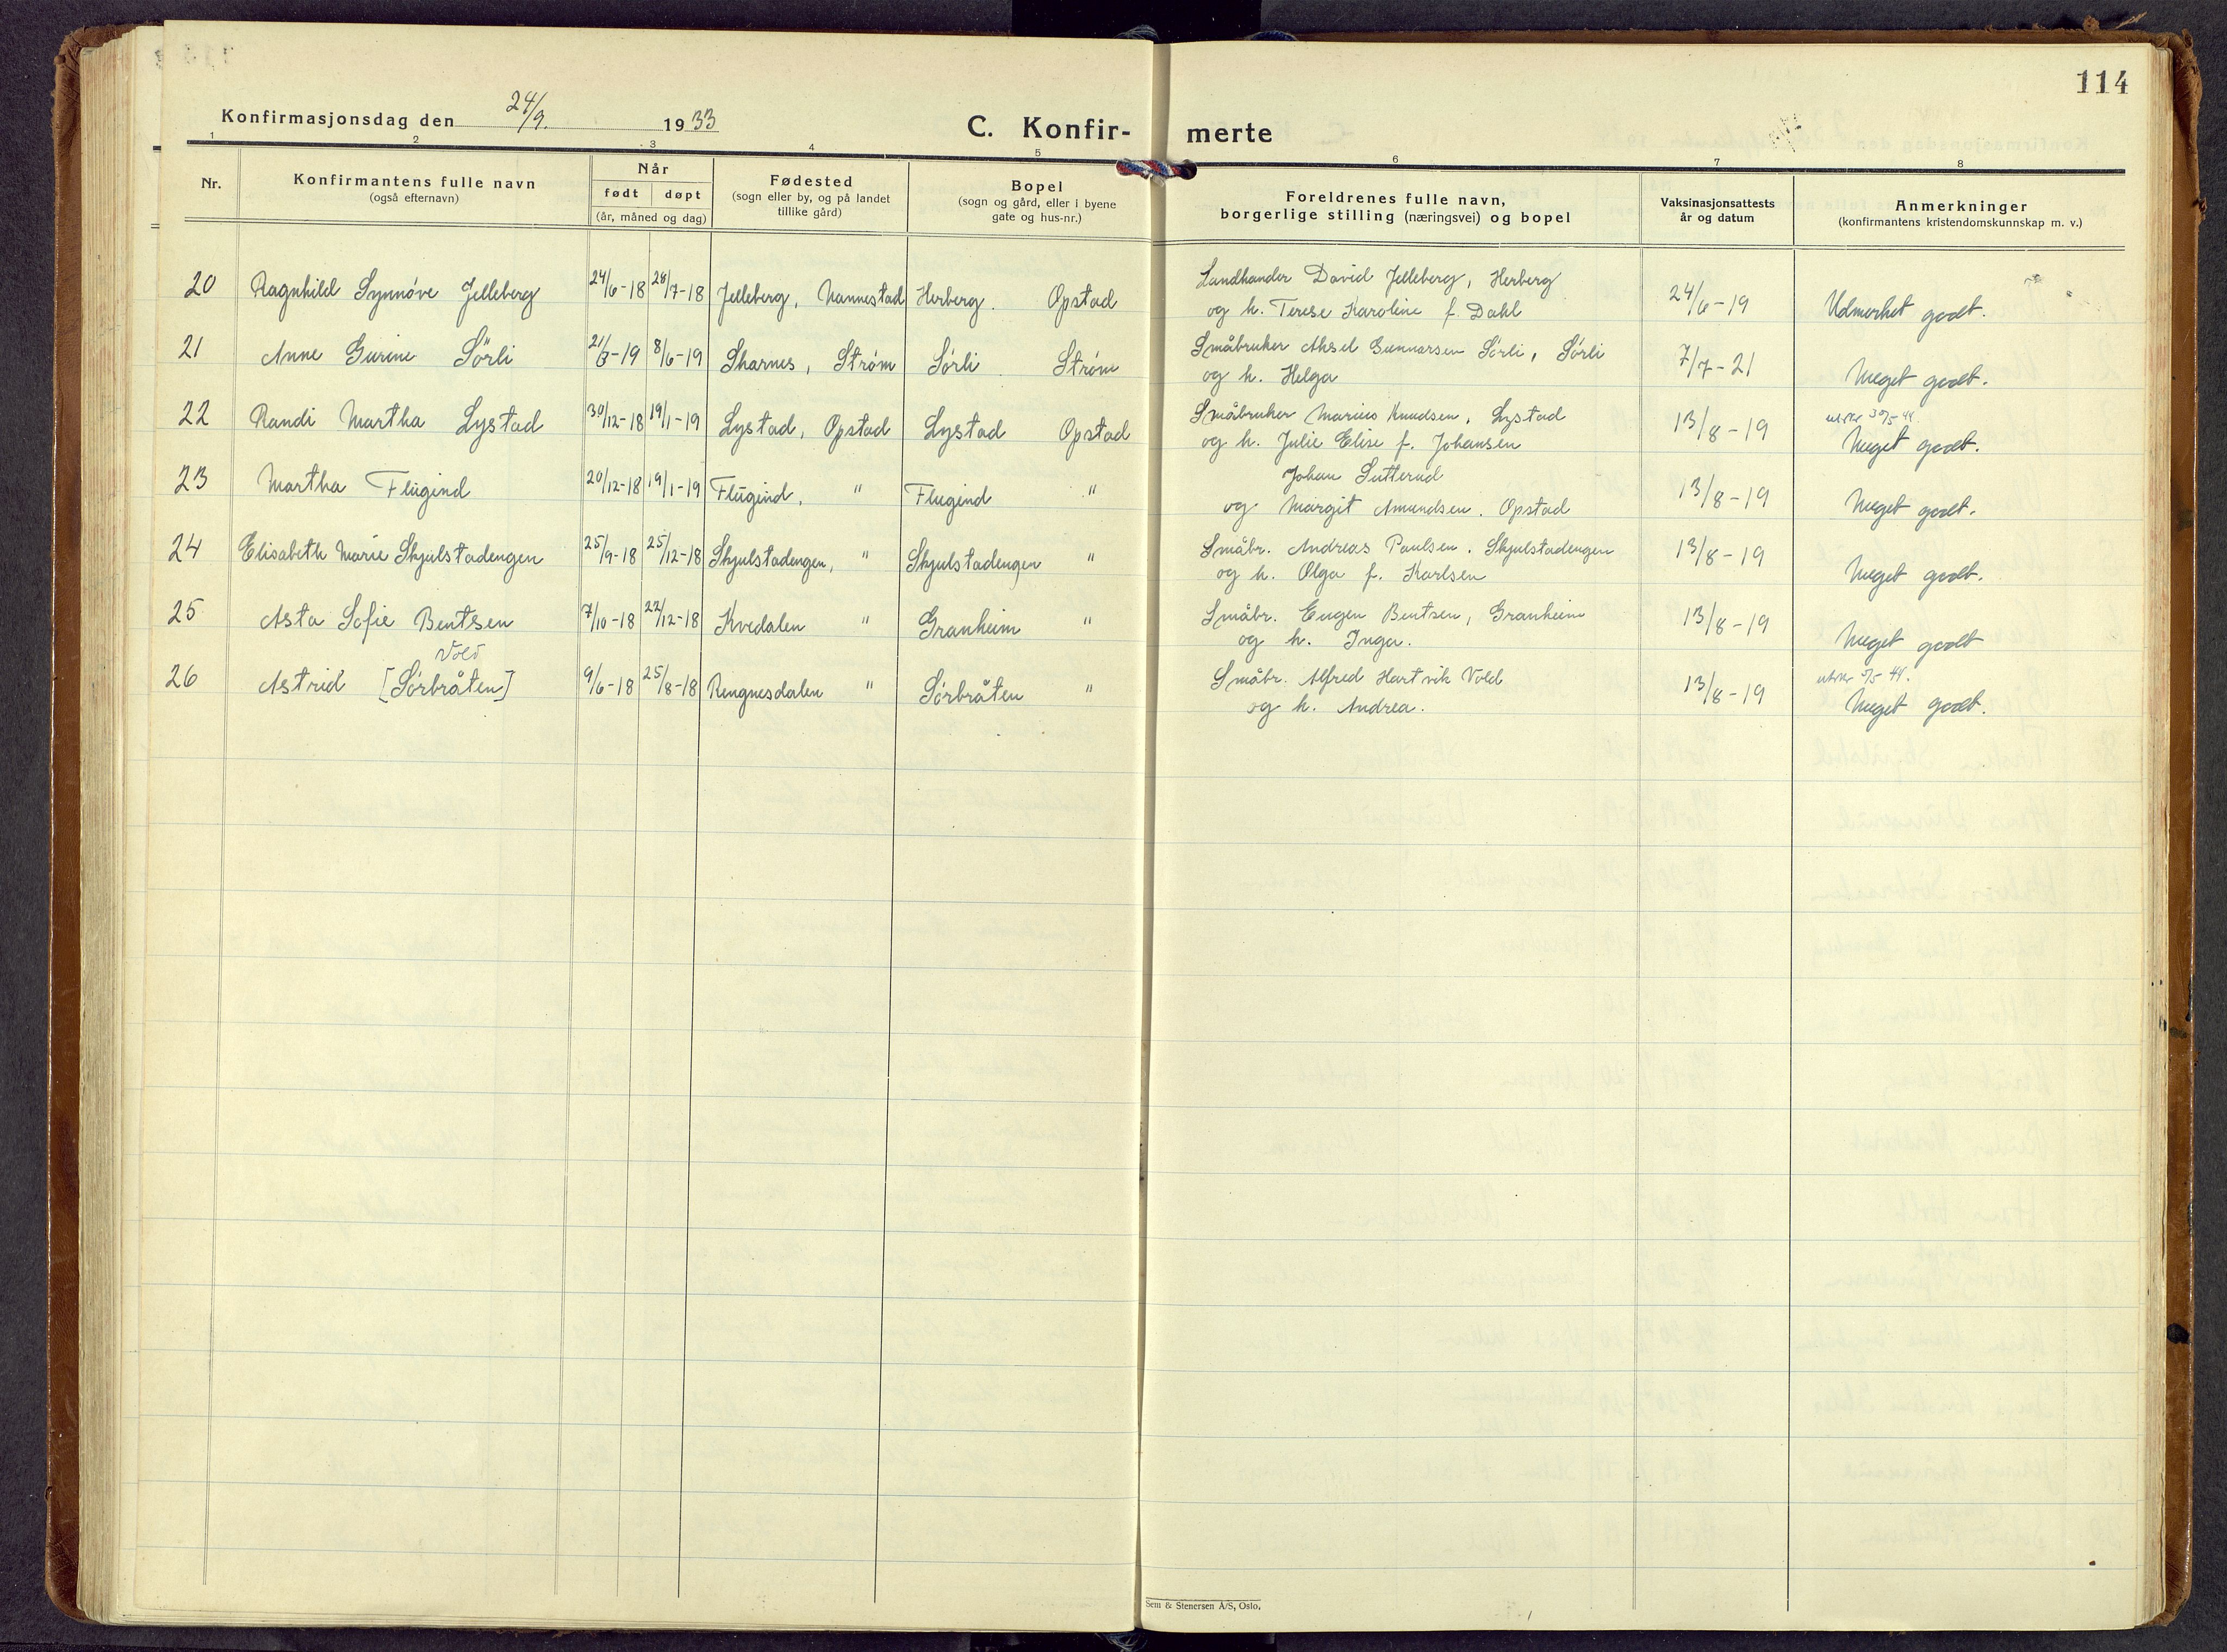 114
Konfirmasjonsdag den 24/9. 1933
C. Konfir- merte
1 2 3 4 5 6 7 8
Nr.
Konfirmantens fulle navn
(også efternavn)
Når
født døpt
(år, måned og dag)
Fødested
(sogn eller by, og på landet
tillike gård)
Bopel
(sogn og gård, eller i byene
gate og hus-nr.)
Foreldrenes fulle navn,
borgerlige stilling (næringsvei) og bopel
Vaksinasjonsattests
år og datum
Anmerkninger
(konfirmantens kristendomskunnskap m. v.)
20 Ragnhild Synnøve Jelleberg 24/6-18 28/7-18 Jelleberg, Nannestad Herberg. Opstad
Landhandler David Jelleberg, Herberg
og h. Terese Karoline f. Dahl
24/6-19 Udmerket godt.
21 Anne Gurine Sørli 21/3-19 8/6-19 Skarnes, Strøm Sørli. Strøm
Småbruker Aksel Gunnarsen Sørli, Sørli
og h. Helga
7/7-21 Meget godt.
22 Randi Martha Lystad 30/12-18 19/1-19 Lystad, Opstad Lystad Opstad
Småbruker Marius Knudsen, Lystad
og h. Julie Elise f. Johansen
13/8-19
Meget godt.
23 Martha Flugind 20/12-18 19/1-19 Flugind, " Flugind "
Johan Sutterud
og Margit Amundsen. Opstad
13/8-19 Meget godt.
24 Elisabeth Marie Skjulstadengen 25/9-18 25/12-18 Skjulstadengen, " Skjulstadengen "
Småbr. Andreas Paulsen. Skjulstadengen
og h. Olga f. Karlsen
13/8-19 Meget godt.
25 Asta Sofie Bentsen 7/10-18 22/12-18 Kvedalen " Granheim "
Småbr. Eugen Bentsen, Granheim
og h. Inga.
13/8-19 Meget godt
Vold
26 Astrid [Sørbråten] 9/6-18 25/8-18 Rengnesdalen " Sørbråten "
Småbr. Alfred Hartvik Vold
og h. Andrea.
13/8-19
Meget godt.
Sem & Stenersen A/S, Oslo.